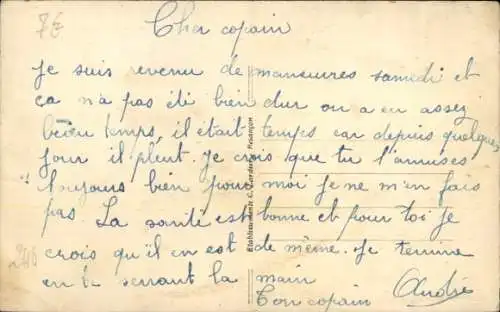 7€
Cher copain
Je suis revenu de manœuvres samedi et
ça na pas été bien dur on a eu assez
beau temps, il était temps car depuis quelques
jour il pleut. Je crois que tu t'amuses
toujours bien pour moi je ne m'en fais
pas. La santé est bonne et pour toi je
crois qu'il en est de même. Je termine
en te serrant la main
Ton copain André
Etablissements C.